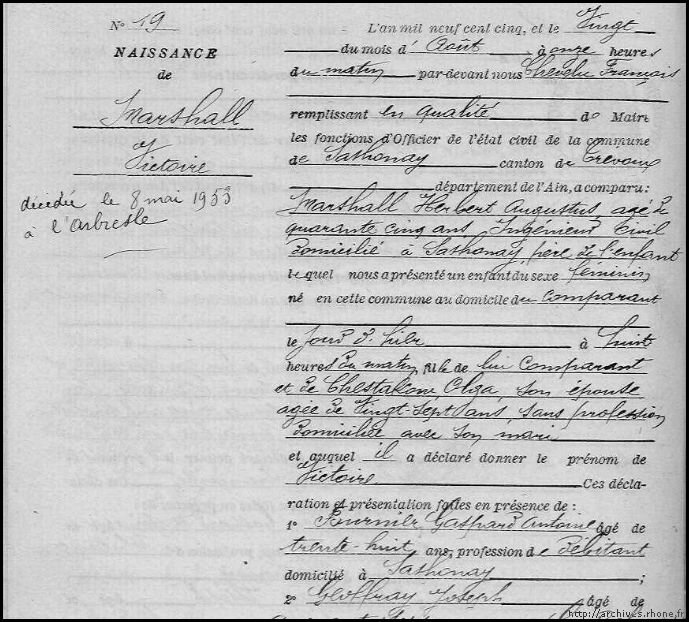 N° 19
NAISSANCE
de
Marshall
Victoire
décédée le 8 mai 1953
à l'Arbresle
L'an mil neuf cent cinq, et le Vingt
du mois d' Août à onze heures
du matin par-devant nous Chevelu François
remplissant en qualité de Maire
les fonctions d'Officier de l'état civil de la commune
de Sathonay canton de Trévoux
département de l'Ain, a comparu:
Marshall Herbert Augustus, agé de
quarante cinq ans, Ingénieur Civil
domicilié à Sathonay, père de l'enfant
lequel nous a présenté un enfant du sexe féminin
né en cette commune au domicile du comparant
le jour d'hier à huit
heures du matin, fille de lui comparant
et de Olga, son épouse
agée de Vingt-sept ans, sans profession
domiciliée avec son mari
et auquel il a déclaré donner le prénom de
Victoire Ces décla-
ration et présentation faites en présence de:
1° Fournier Gaspard Antoine âgé de
trente-huit ans, profession de Débitant
domicilié à Sathonay ;
2° Geoffray Joseph âgé de
http://archives.rhone.fr